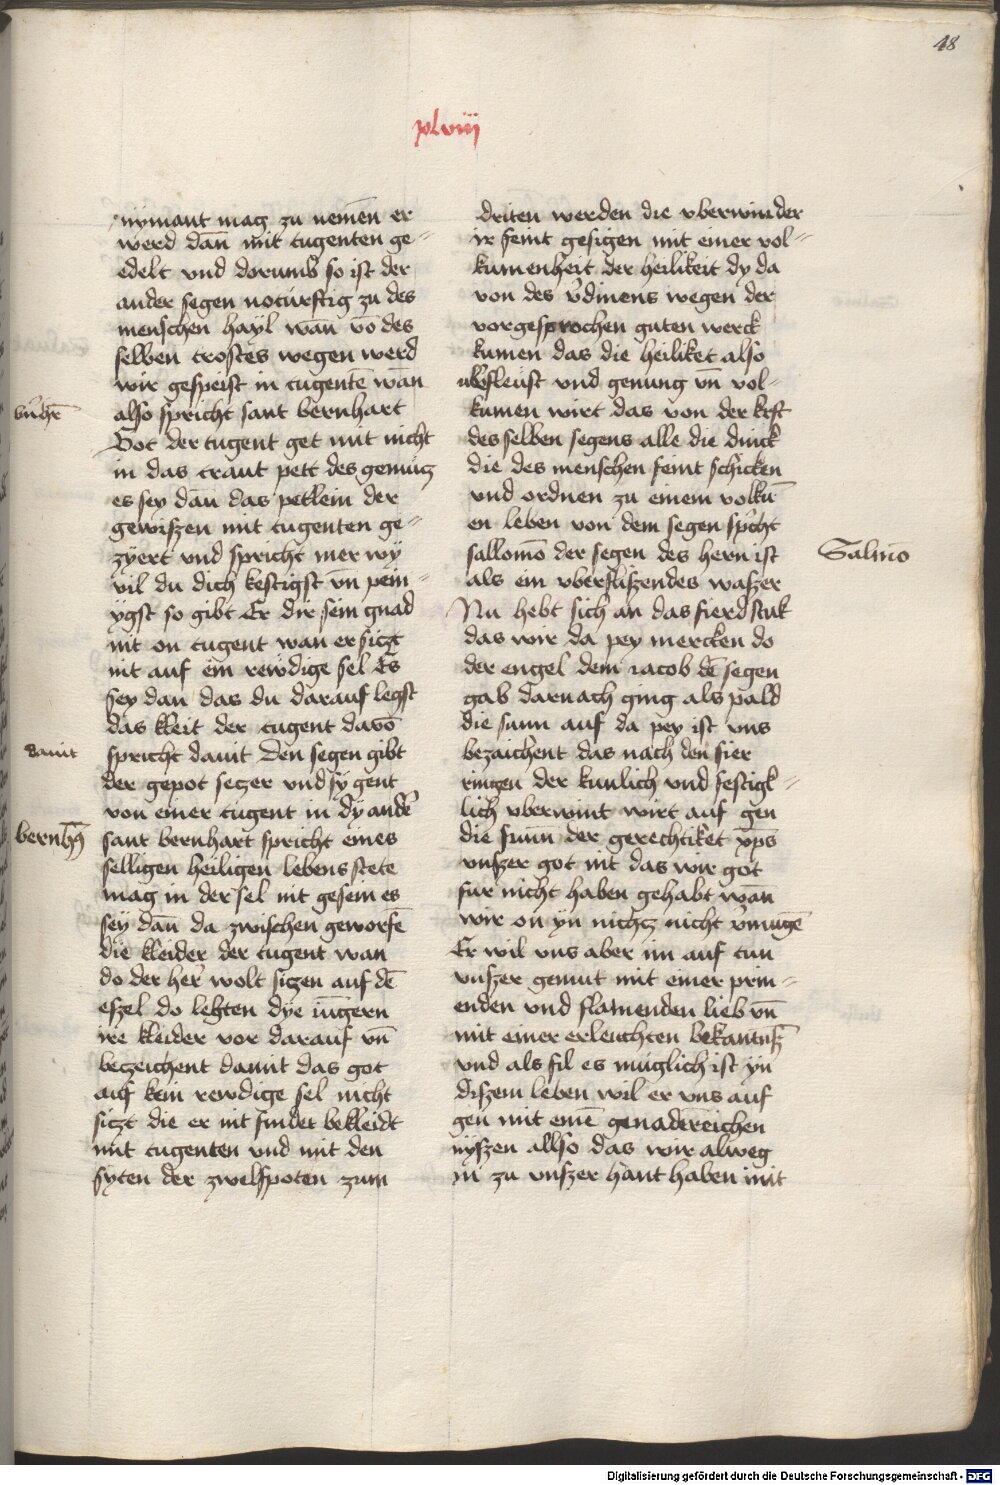 48
xlviii
nymant mag zu nemen er
werd dan̄ mit tugenten ge=
edelt vnd dorumb so ist der
ander segen noturftig zu des
menschen hayl wan̄ vō des
selben trostes wegen werd
wir gespeist in tugentē wān
also spricht sant bernhart
Got der tugent get mit nicht
in das traut pett des gemutz
es sey dan̄ das petlein der
gewiszen mit tugenten ge=
zyert vnd spricht mer wy
vil du dich kestigst vn̄ pein=
ygst so gibt Er dir sein gnad
nit on tugent wan er siczt
nit auf ein rewdige sel Es
sey dan das du darauf legst
das kleit der tugent davō
dauit
spricht dauit Den segen gibt
der gepot seczer vnd sy gent
von einer tugent in dy anderˀ
sant bernhart spricht eines
selligen heiligen lebens stete
mag in der sel nit gesein es
sey dan̄ da zwischen geworfē
die kleider der tugent wan
do der her wolt siczen auf dē
eszel do legten dye iungern
ire kleider vor darauf vn̄
beczeichent damit das got
auf kein rewdige sel nicht
siczt die er nit findet bekleidt
mit tugenten vnd mit den
syten der zwelfpoten zum
driten werden die vberwinder
ir feint gesigen mit einer vol=
kumenheit der heilikeit dy da
von des v̉dinens wegen der
vorgesprochen guten werck
kumen das die heiliket also
vb̉fleust vnd genung vn̄ vol=
kumen wirt das von der krft
des selben segens alle die dinck
die des menschen feint schicken
vnd ordnen zu einem volkū
en leben von dem segen sp̉cht
sallomō der segen des hern ist
Salmō
als ein vberfliszendes waszer
Nu hebt sich an das fierd stuk
das wir da pey mercken do
der engel dem iacob dē segen
gab darnach ging als pald
die sunn auf da pey ist vns
bezaichent das nach den fier
ringen der kunlich vnd festigk=
lich vberwint wirt auf gen
die sunn der gerechtiket xp̄s
vnszer got nit das wir got
fur nicht haben gehabt wan̄
wir on yn nichcz nicht v̉mugē
Er wil vns aber im auf tun
vnszer gemut mit einer prin=
enden vnd flamenden lieb vn̄
mit einer erleuchten bekantnusz
vnd als fil es muglich ist yn
diszem leben wil er vns auf
gen mit einē genadereichen
nyszen allso das wir alweg
in zu vnszer hant haben mit
Digitalisierung gefördert durch die Deutsche Forschungsgemeinschaft - DFG